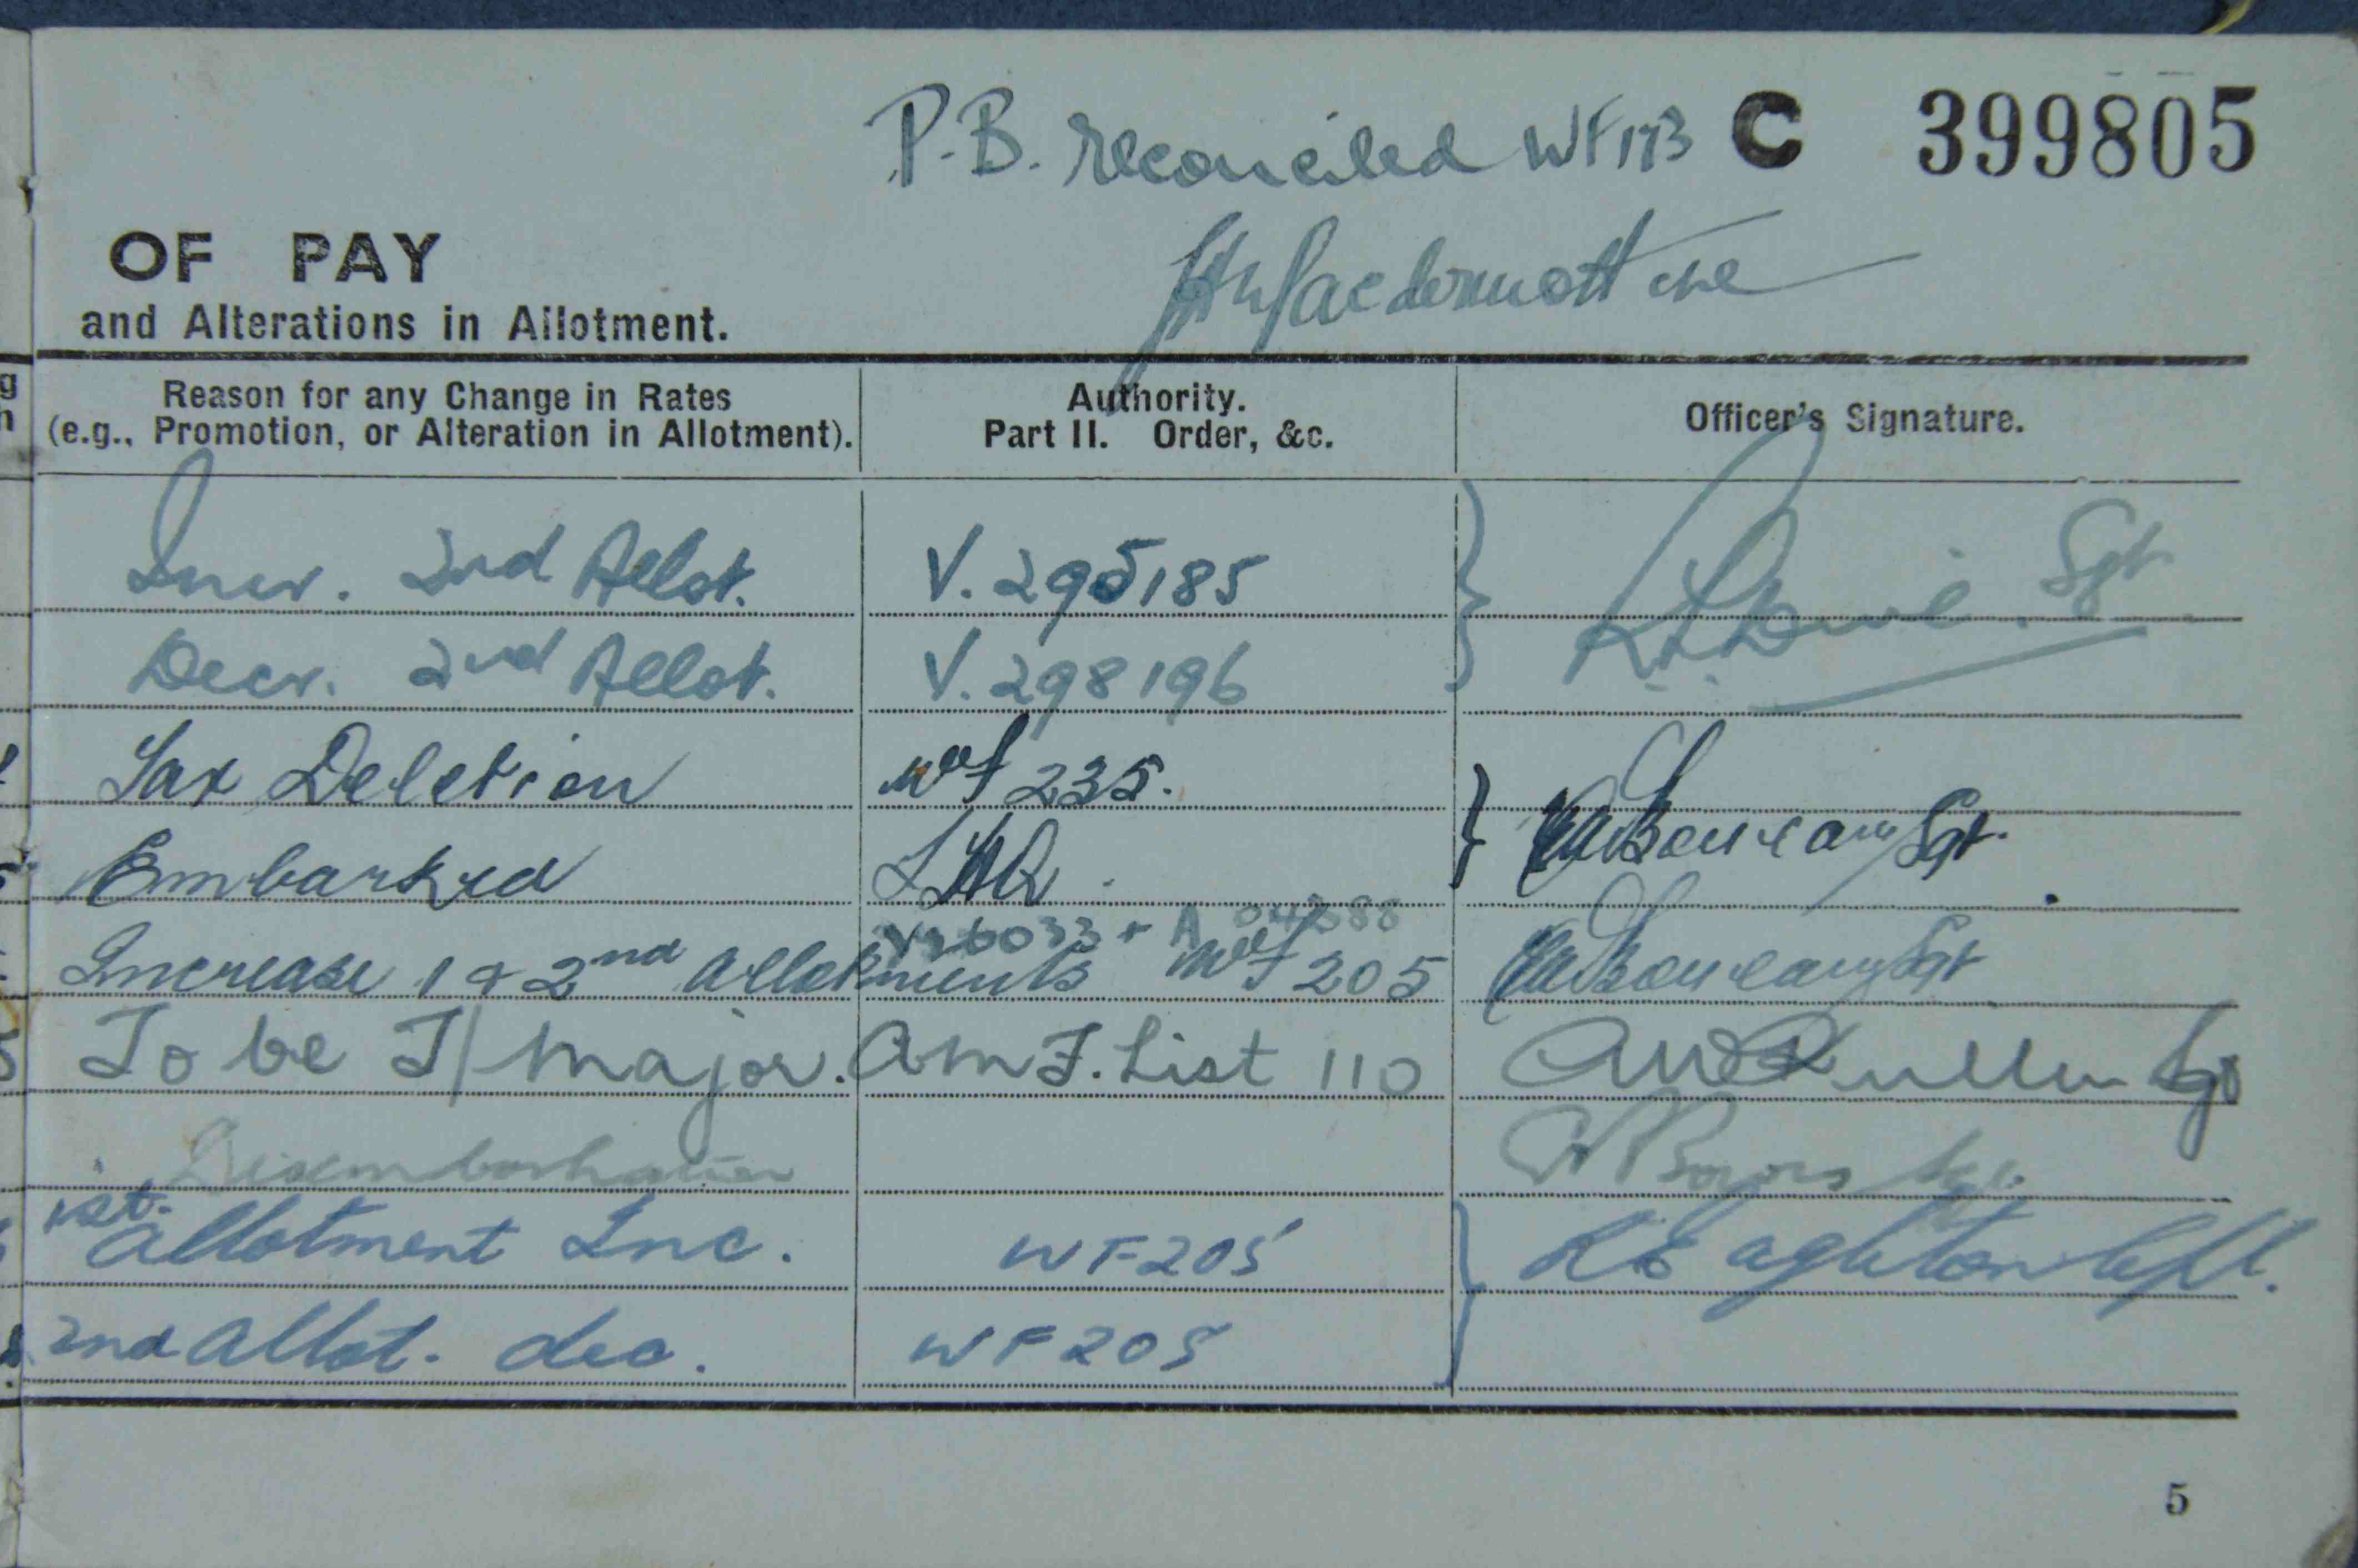 P.B. reconciled WF173 C 399805
OF PAY
and Alterations in Allotment.
Reason for any Change in Rates
(e.g., Promotion, or Alteration in Allotment).
Authority.
Part II. Order, &c.
Officer's Signature.
Incr. 2nd Allot. V. 295185 Sgt
Decr. 2nd Allot. V. 298196
Tax Deletion WF 235. Sgt.
Embarked LHQ.
Increase 1 & 2nd allotments WF 205 Sgt
To be T/Major. AMF. List 110
Disembarkation
1st.
allotment Inc. WF 205
2nd allot. dec. WF 205
5